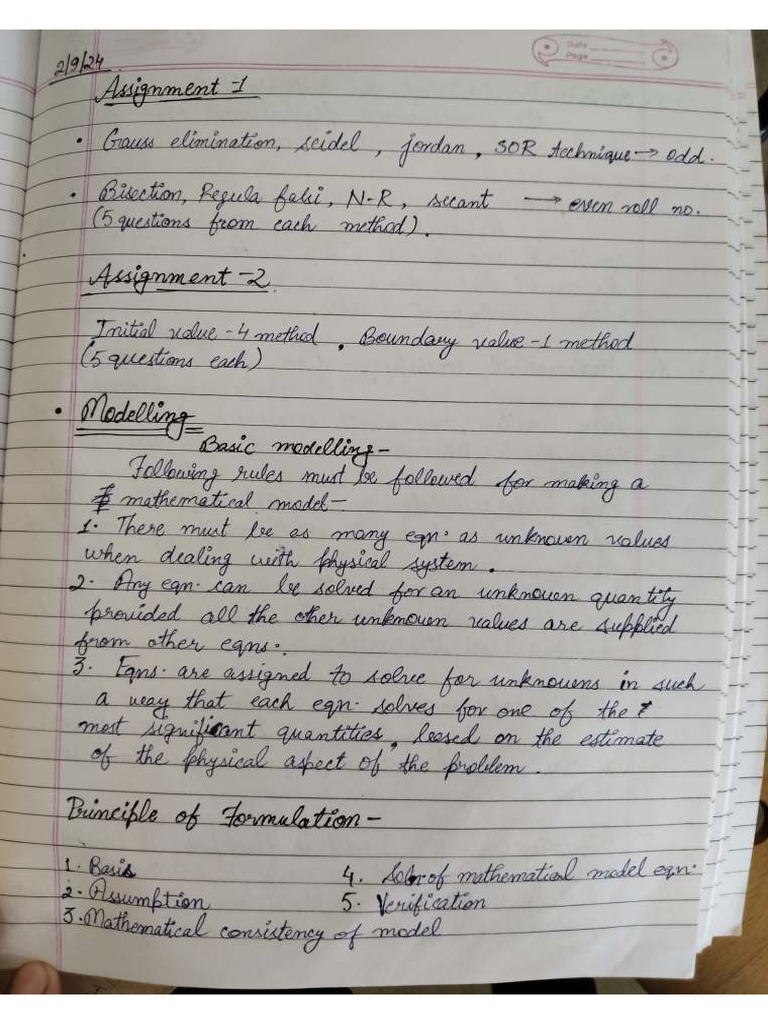 Date
Page
2/9/24
Assignment-1
• Gauss elimination, seidel, jordan, SOR technique → odd.
• Bisection, Regula falsi, N-R, secant → even roll no.
(5 questions from each method).
Assignment-2
Initial value-4 method, Boundary value-1 method
(5 questions each)
• Modelling
Basic modelling-
Following rules must be followed for making a
mathematical model-
1. There must be as many eqn. as unknown values
when dealing with physical system.
2. Any eqn. can be solved for an unknown quantity
provided all the other unknown values are supplied
from other eqns.
3. Eqns. are assigned to solve for unknowns in such
a way that each eqn. solves for one of the
most significant quantities, based on the estimate
of the physical aspect of the problem.
Principle of Formulation-
1. Basis
2. Assumption
3. Mathematical consistency of model
4. Soln of mathematical model eqn.
5. Verification